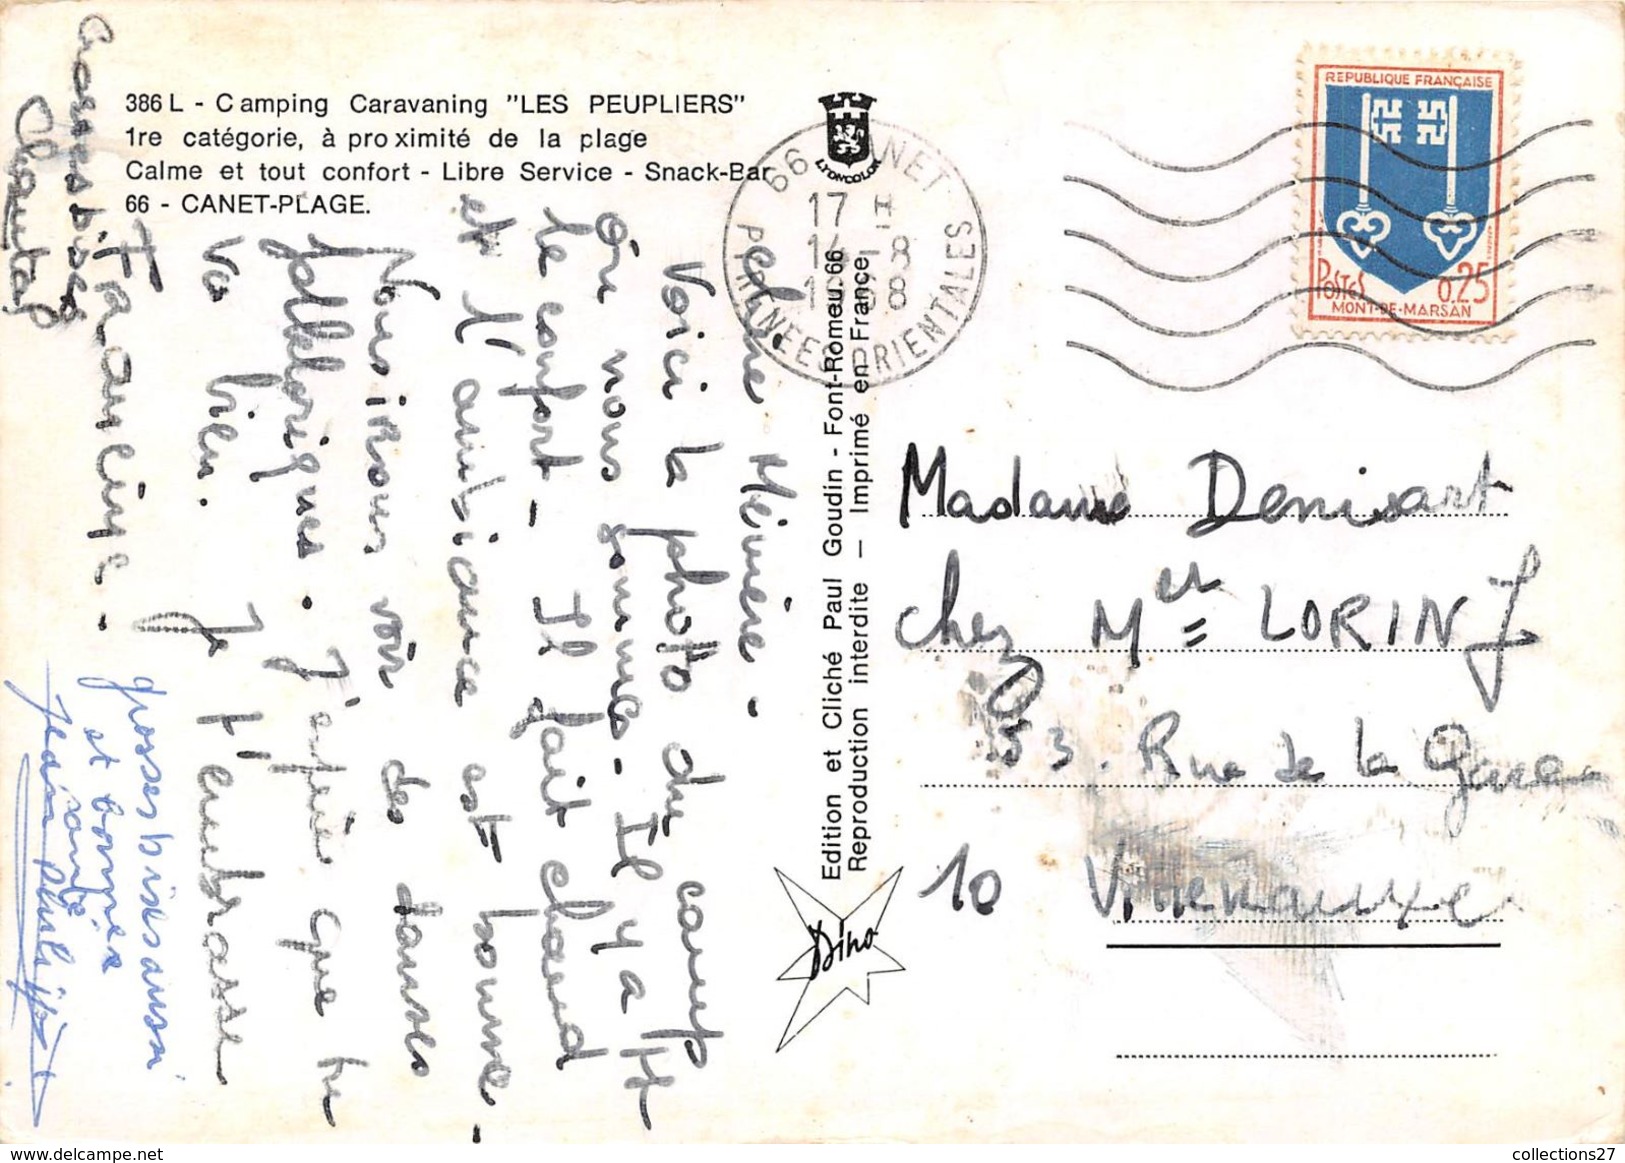 386 L - Camping Caravaning "LES PEUPLIERS"
1re catégorie, à proximité de la plage
Calme et tout confort - Libre Service - Snack-Bar
66 - CANET-PLAGE.
Chère Mémère -
Voici la photo du camp
où nous sommes - Il y a tt
le confort - Il fait chaud
et l'ambiance est bonne -
Nous irons voir des danses
folkloriques. J'espère que tu
vas bien. Je t'embrasse
Francine -
Grosses bises
Chantal
grosses bises aussi
et bonne
santé
Jean Philippe
LYONCOLOR
66 CANET
17 H
14 -8
1968
PYRENEES ORIENTALES
REPUBLIQUE FRANÇAISE
POSTES 0,25
MONT-DE-MARSAN
Edition et Cliché Paul Goudin - Font-Romeu 66
Reproduction interdite — Imprimé en France
Dino
Madame Denisart
chez Mer LORIN J
33. Rue de la Gare
10 Villenauxe
collections27